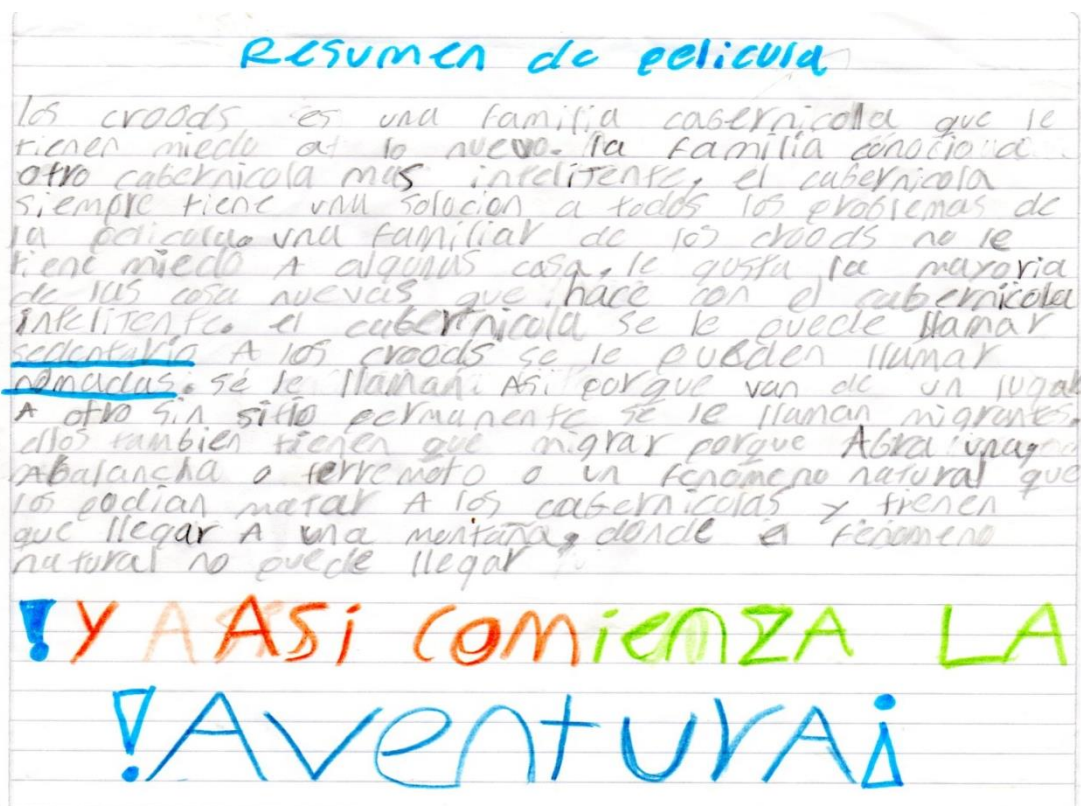 Resumen de pelicula
los croods es una familia cabernicola que le
tienen miedo at lo nuevo. la familia conocio a
otro cabernicola mas intelitente, el cabernicola
siempre tiene una solocion a todos los problemas de
la pelicula. una familiar de los croods no le
tiene miedo A algunas casa. le gusta la mayoria
de las cosa nuevas que hace con el cabernicola
intelitente. el cabernicola se le puede llamar
sedentario A los croods se le pueden llamar
nomadas. se le llaman Asi porque van de un lugar
A otro sin sitio permanente se le llaman migrantes.
ellos tambien tienen que migrar porque Abra una
Abalancha o terremoto o un fenomeno natural que
los podian matar A los cabernicolas y tienen
que llegar A una montaña, donde el fenomeno
natural no puede llegar
!Y A ASi COMienZA LA
!AventurA¡